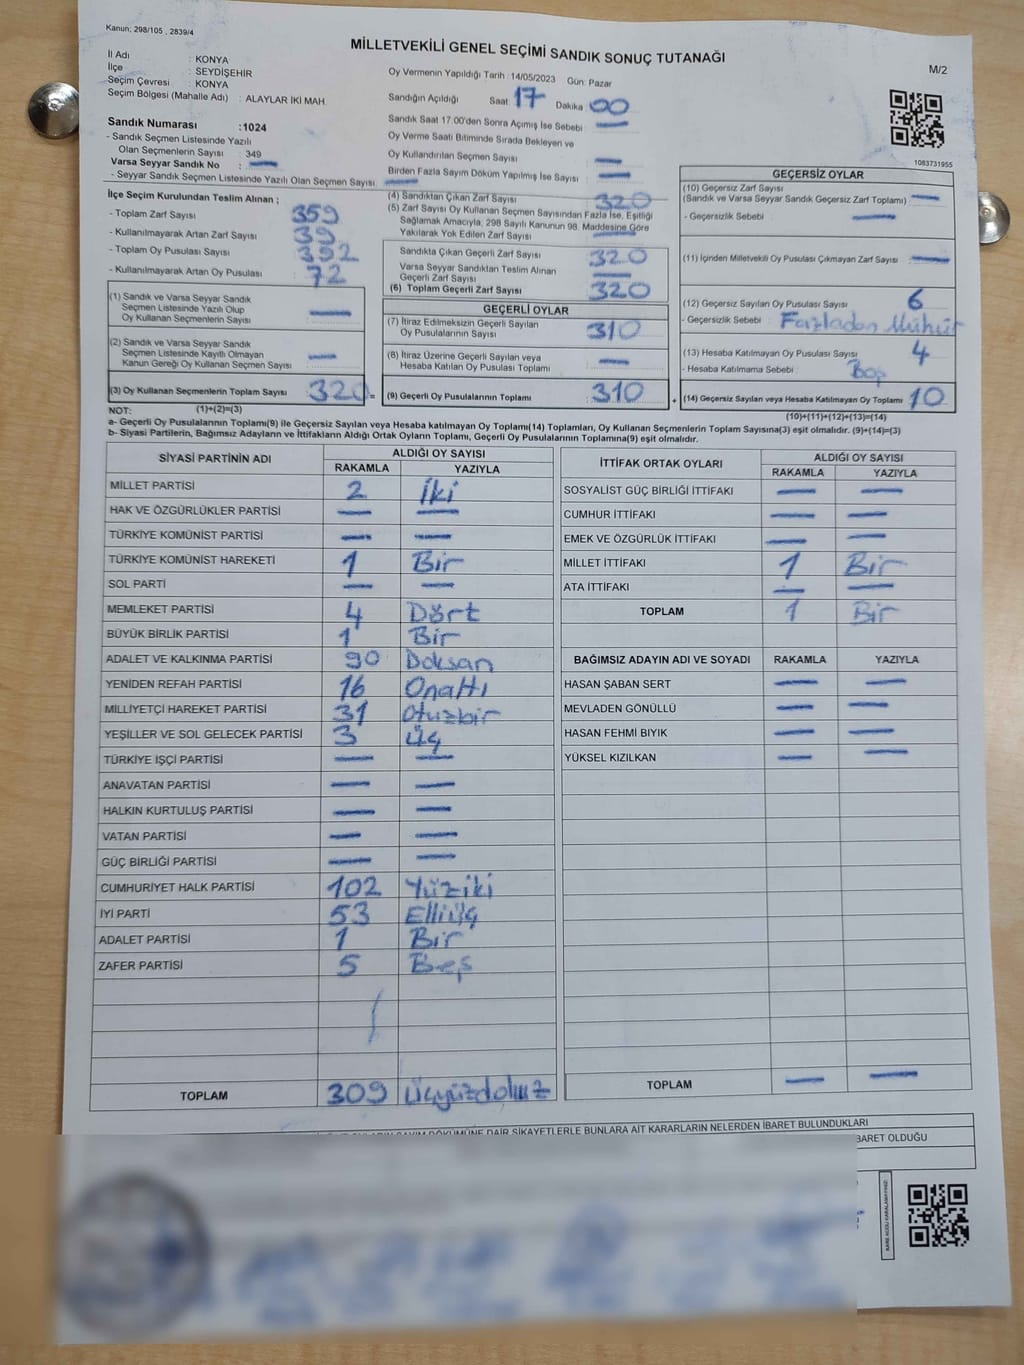 Kanun: 298/105 , 2839/4
MİLLETVEKİLİ GENEL SEÇİMİ SANDIK SONUÇ TUTANAĞI
M/2
İl Adı : KONYA
İlçe : SEYDİŞEHİR
Seçim Çevresi : KONYA
Seçim Bölgesi (Mahalle Adı) : ALAYLAR İKİ MAH.
Sandık Numarası :1024
- Sandık Seçmen Listesinde Yazılı
Olan Seçmenlerin Sayısı : 349
Varsa Seyyar Sandık No : —
- Seyyar Sandık Seçmen Listesinde Yazılı Olan Seçmen Sayısı: —
Oy Vermenin Yapıldığı Tarih : 14/05/2023 Gün: Pazar
Sandığın Açıldığı Saat 17 Dakika 00
Sandık Saat 17.00'den Sonra Açımış İse Sebebi —
Oy Verme Saati Bitiminde Sırada Bekleyen ve
Oy Kullandırılan Seçmen Sayısı —
Birden Fazla Sayım Döküm Yapılmış İse Sayısı —
1083731955
İlçe Seçim Kurulundan Teslim Alınan ;
- Toplam Zarf Sayısı 359
- Kullanılmayarak Artan Zarf Sayısı 39
- Toplam Oy Pusulası Sayısı 392
- Kullanılmayarak Artan Oy Pusulası 72
(1) Sandık ve Varsa Seyyar Sandık
Seçmen Listesinde Yazılı Olup
Oy Kullanan Seçmenlerin Sayısı —
(2) Sandık ve Varsa Seyyar Sandık
Seçmen Listesinde Kayıtlı Olmayan
Kanun Gereği Oy Kullanan Seçmen Sayısı —
(3) Oy Kullanan Seçmenlerin Toplam Sayısı 320 =
(4) Sandıktan Çıkan Zarf Sayısı 320
(5) Zarf Sayısı Oy Kullanan Seçmen Sayısından Fazla İse, Eşitliği
Sağlamak Amacıyla, 298 Sayılı Kanunun 98. Maddesine Göre
Yakılarak Yok Edilen Zarf Sayısı —
Sandıkta Çıkan Geçerli Zarf Sayısı 320
Varsa Seyyar Sandıktan Teslim Alınan
Geçerli Zarf Sayısı —
(6) Toplam Geçerli Zarf Sayısı 320
GEÇERLİ OYLAR
(7) İtiraz Edilmeksizin Geçerli Sayılan
Oy Pusulalarının Sayısı 310
(8) İtiraz Üzerine Geçerli Sayılan veya
Hesaba Katılan Oy Pusulası Toplamı —
(9) Geçerli Oy Pusulalarının Toplamı 310 +
GEÇERSİZ OYLAR
(10) Geçersiz Zarf Sayısı
(Sandık ve Varsa Seyyar Sandık Geçersiz Zarf Toplamı) —
- Geçersizlik Sebebi —
(11) İçinden Milletvekili Oy Pusulası Çıkmayan Zarf Sayısı —
(12) Geçersiz Sayılan Oy Pusulası Sayısı 6
- Geçersizlik Sebebi : Fazladan Mühür
(13) Hesaba Katılmayan Oy Pusulası Sayısı 4
- Hesaba Katılmama Sebebi : Boş
(14) Geçersiz Sayılan veya Hesaba Katılmayan Oy Toplamı 10
NOT: (1)+(2)=(3)
(10)+(11)+(12)+(13)=(14)
a- Geçerli Oy Pusulalarının Toplamı(9) ile Geçersiz Sayılan veya Hesaba katılmayan Oy Toplamı(14) Toplamları, Oy Kullanan Seçmenlerin Toplam Sayısına(3) eşit olmalıdır. (9)+(14)=(3)
b- Siyasi Partilerin, Bağımsız Adayların ve İttifakların Aldığı Ortak Oyların Toplamı, Geçerli Oy Pusulalarının Toplamına(9) eşit olmalıdır.
SİYASİ PARTİNİN ADI ALDIĞI OY SAYISI
RAKAMLA YAZIYLA
MİLLET PARTİSİ 2 İki
HAK VE ÖZGÜRLÜKLER PARTİSİ — —
TÜRKİYE KOMÜNİST PARTİSİ — —
TÜRKİYE KOMÜNİST HAREKETİ 1 Bir
SOL PARTİ — —
MEMLEKET PARTİSİ 4 Dört
BÜYÜK BİRLİK PARTİSİ 1 Bir
ADALET VE KALKINMA PARTİSİ 90 Doksan
YENİDEN REFAH PARTİSİ 16 Onaltı
MİLLİYETÇİ HAREKET PARTİSİ 31 Otuzbir
YEŞİLLER VE SOL GELECEK PARTİSİ 3 Üç
TÜRKİYE İŞÇİ PARTİSİ — —
ANAVATAN PARTİSİ — —
HALKIN KURTULUŞ PARTİSİ — —
VATAN PARTİSİ — —
GÜÇ BİRLİĞİ PARTİSİ — —
CUMHURİYET HALK PARTİSİ 102 Yüziki
İYİ PARTİ 53 Elliüç
ADALET PARTİSİ 1 Bir
ZAFER PARTİSİ 5 Beş
TOPLAM 309 Üçyüzdokuz
İTTİFAK ORTAK OYLARI ALDIĞI OY SAYISI
RAKAMLA YAZIYLA
SOSYALİST GÜÇ BİRLİĞİ İTTİFAKI — —
CUMHUR İTTİFAKI — —
EMEK VE ÖZGÜRLÜK İTTİFAKI — —
MİLLET İTTİFAKI 1 Bir
ATA İTTİFAKI — —
TOPLAM 1 Bir
BAĞIMSIZ ADAYIN ADI VE SOYADI RAKAMLA YAZIYLA
HASAN ŞABAN SERT — —
MEVLADEN GÖNÜLLÜ — —
HASAN FEHMİ BIYIK — —
YÜKSEL KIZILKAN — —
TOPLAM — —
DÖKÜMÜNE DAİR ŞİKAYETLERLE BUNLARA AİT KARARLARIN NELERDEN İBARET BULUNDUKLARI
İBARET OLDUĞU